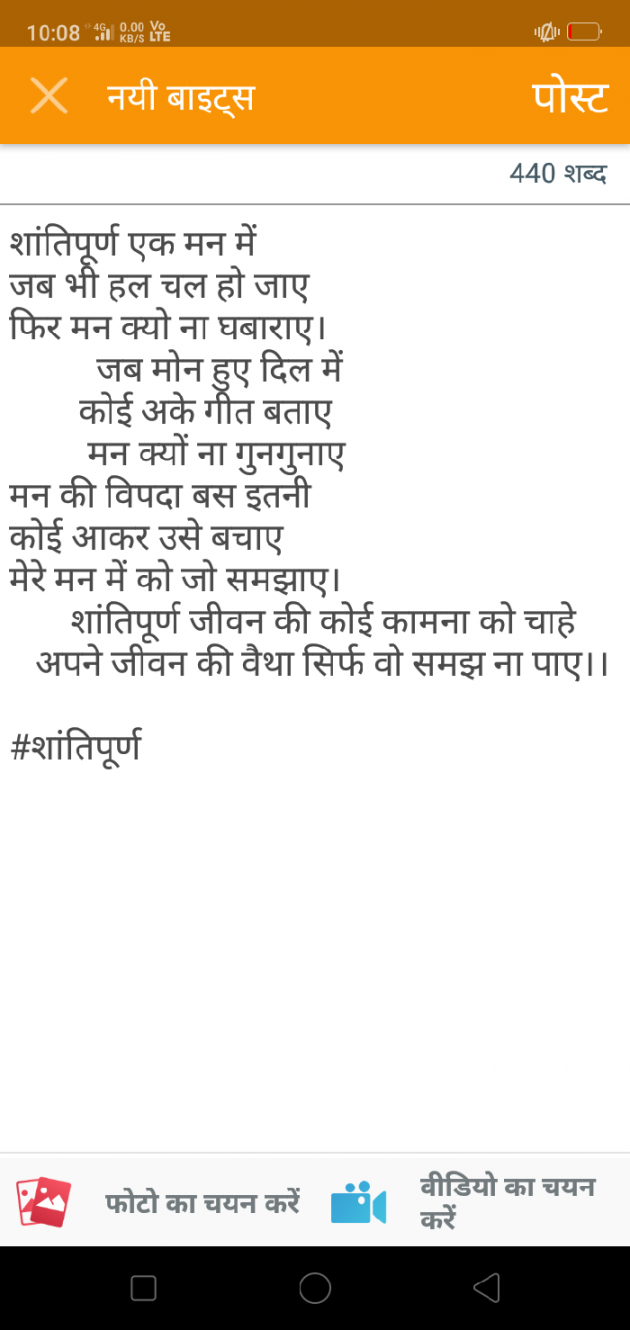 10:08 4G 0.00 KB/S Vo LTE
नयी बाइट्स
पोस्ट
440 शब्द
शांतिपूर्ण एक मन में
जब भी हल चल हो जाए
फिर मन क्यो ना घबाराए।
जब मोन हुए दिल में
कोई अके गीत बताए
मन क्यों ना गुनगुनाए
मन की विपदा बस इतनी
कोई आकर उसे बचाए
मेरे मन में को जो समझाए।
शांतिपूर्ण जीवन की कोई कामना को चाहे
अपने जीवन की वैथा सिर्फ वो समझ ना पाए।।
#शांतिपूर्ण
फोटो का चयन करें
वीडियो का चयन
करें